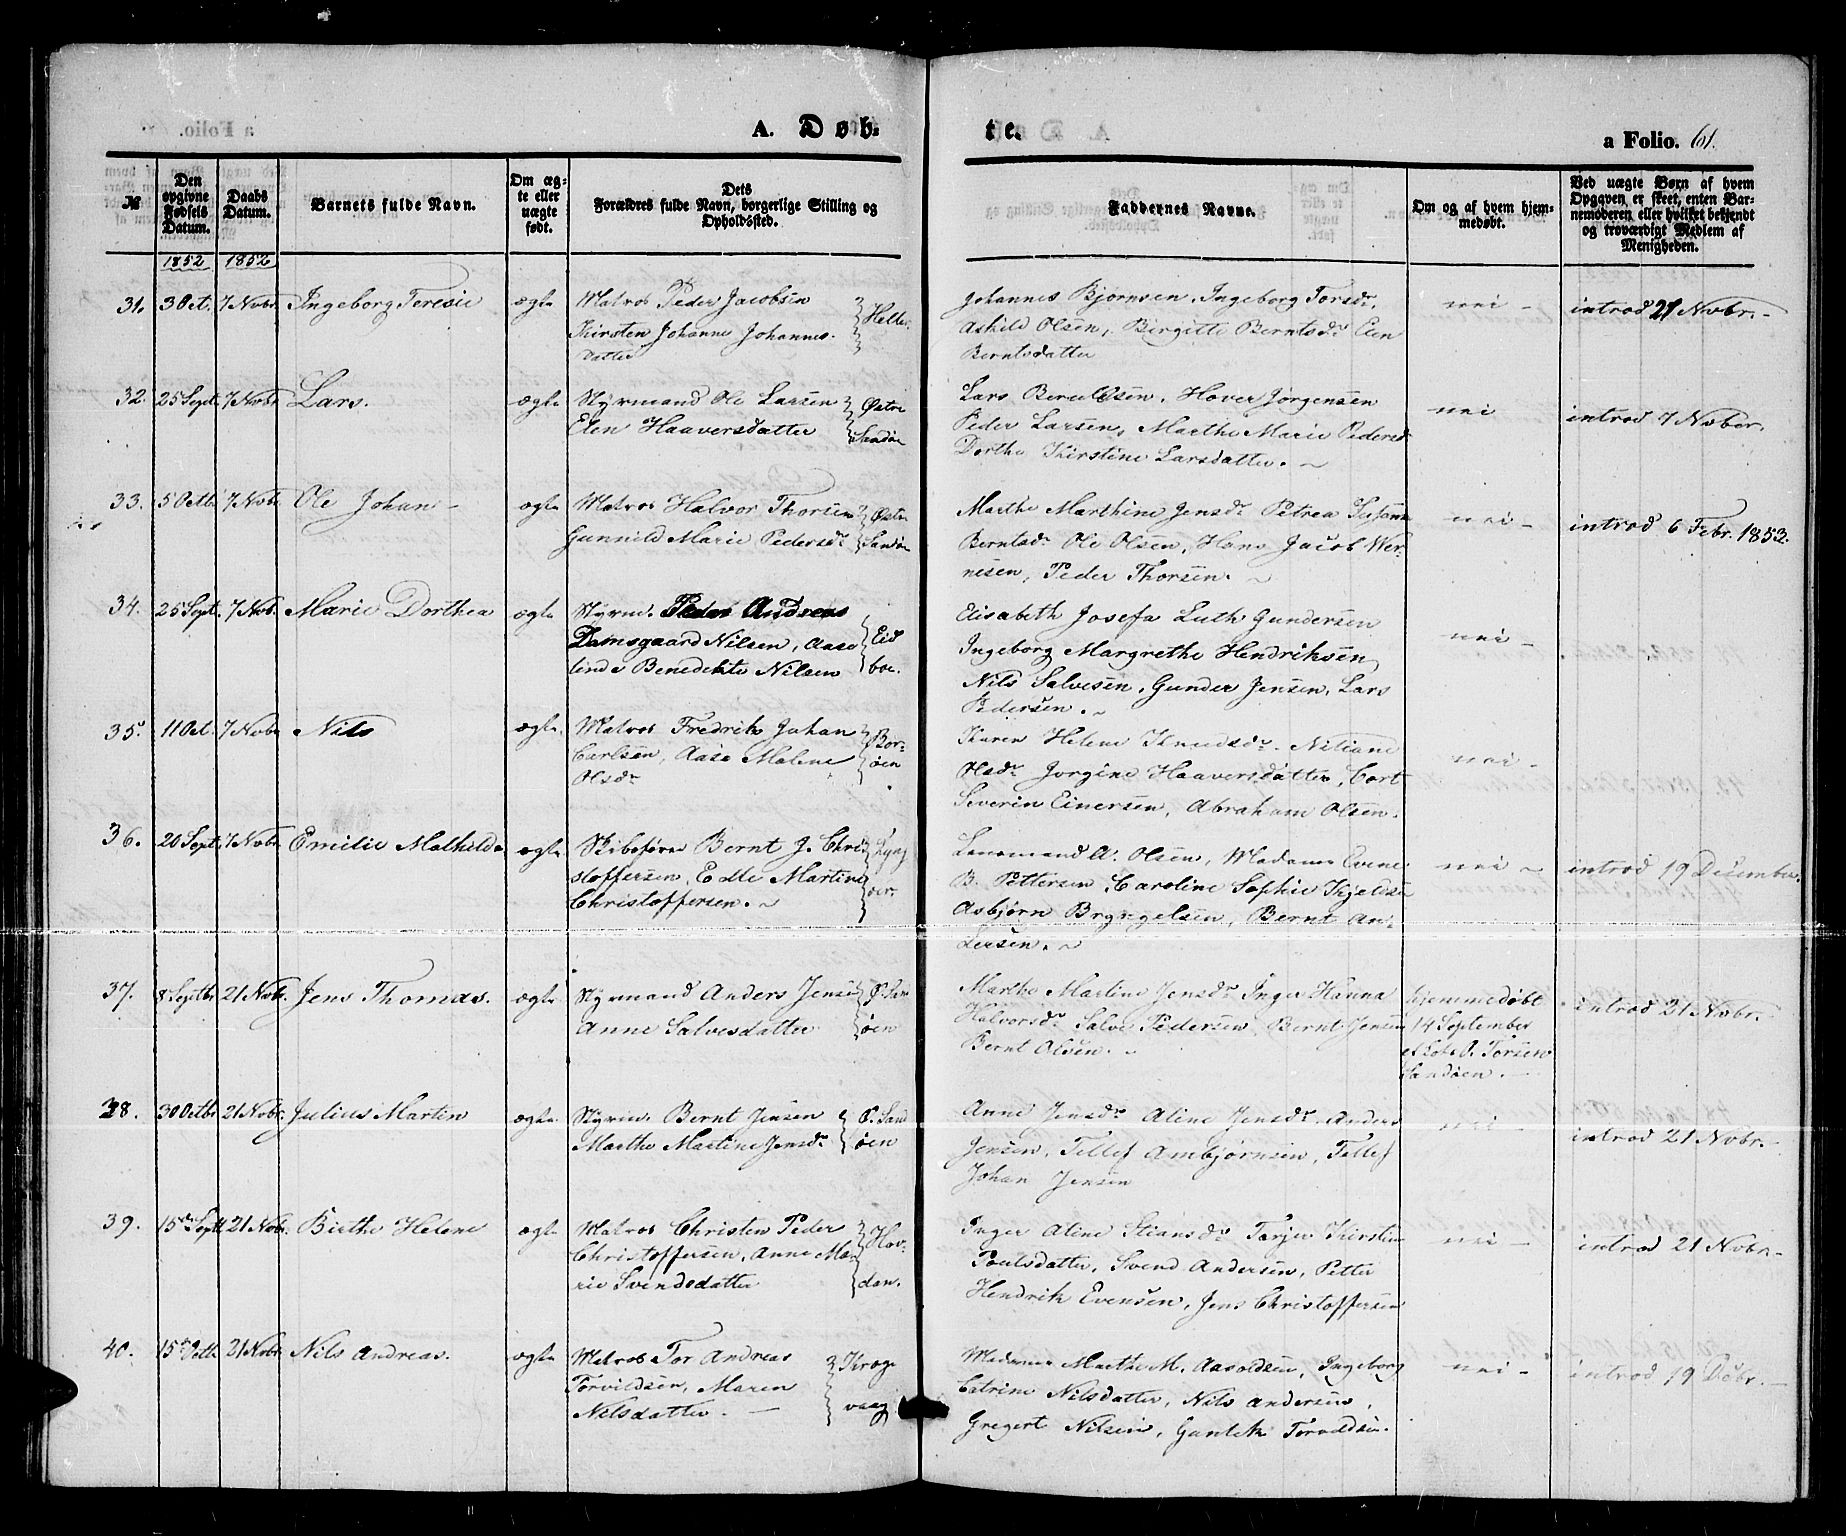 A. Døb-
te.
a Folio. 61.
№
Den opgivne Fødsels Datum.
Daabs Datum.
Barnets fulde Navn.
Om ægte eller uægte født.
Dets Forældres fulde Navn, borgerlige Stilling og Opholdssted.
Faddernes Navne.
Om og af hvem hjemmedøbt.
Ved uægte Børn af hvem Opgaven er skeet, enten Barnemoderen eller hvilket bekjendt og troværdigt Medlem af Menigheden.
1852 1852
31. 3 Oct. 7 Nobr. Ingeborg Teresie ægte Matros Peder Jacobsen
Kirsten Johanne Johannes-
datter
Helle
Johannes Bjørnsen, Ingeborg Torsdr,
Askild Olsen, Birgitte Berntsdr Elen
Berntsdatter
nei - introd 21 Nobr. -
32. 25 Sept. 7 Nobr Lars. ægte Styrmand Ole Larsen
Elen Haaversdatter
Østre
Sandøe
Lars Olsen, Hover Jørgensen
Peder Larsen, Marthe Marie Pedersd
Dorthe Kirstine Larsdatter. ~
nei introd 7 Nober.
33. 5 Octbr 7 Nobr. Ole Johan - ægte Matros Halvor Thorsen
Gunnild Marie Pedersdr
Østre
Sandøe
Marthe Marthine Jensdr Petrea
Berntsdr Ole Olsen, Hans Jacob Wer-
nesen, Peder Thorsen. ~
nei - introd 6 Febr. 1853.
34. 25 Sept. 7 Nob. Marie Dorthea ægte Styrm. Peder Andreas
Damsgaard Nilsen, Aase
linde Benedikte Nilsen
Eid
boe.
Elisabeth Josefa Luth Gundersen
Ingeborg Margrethe Hendriksen,
Nils Salvesen, Gunder Jensen, Lars
Pedersen. ~
nei -
35. 11 Oct. 7 Nobr Nils ægte. Matros Fredrik Johan
Carlsen, Aase Malene
Olsdr
Bor-
øen
Karen Helene Knudsdr. Niliane
Olsdr Jorgine Haaversdatter, Cort
Severin Einersen, Abraham Olsen.
nei -
36. 20 Sept. 7 Nobr. Emilie Mathilde ægte. Skibsfører Bernt J. Chri
stoffersen, Edle Martine
Christoffersen. ~
Lyng
øer.
Lensmand A. Olsen, Madame Evene
B. Pettersen, Caroline Sophie Kjelds
Asbjørn Brynjelsen, Bernt An-
dersen. ~
nei ~ introd 19 December.
37. 8 Septbr 21 Nobr. Jens Thomas. ægte Styrmand Anders Jensen
Anne Salvesdatter
Ø. San
øen
Marthe Martine Jensdr Inger Hanna
Halvorsdr Salve Pedersen, Bernt Jensen
Bernt Olsen. ~
hjemmedøbt
14 September
O. Torsen
Sandøen.
introd 21 Nobr.
38. 3 Octbr 21 Nobr. Julius Martin ægte. Styrm. Bernt Jensen
Marthe Martine Jensdr
Ø. Sand
øen
Anne Jensdr Aline Jensdr. Anders
Jensen, Tellef Ambjørnsen, Tellef
Johan Jensen
nei - introd 21 Nobr. -
39. 15de Sept 21 Nobr. Birthe Helene ægte Matros Christen Peder
Christoffersen, Anne Ma-
rie Svendsdatter
Hov-
dan.
Inger Aline Stiansdr Tarjer Kirstin
Poulsdatter, Svend Andersen, Petter
Hendrik Evensen, Jens Christoffersen
nei - introd 21 Nobr. -
40. 15de Octb 21 Nobr. Nils Andreas. ægte Matros Tor Andreas
Torvildsen, Maren
Nilsdatter. -
Krog
vaag
Madame Marthe M. Aasoldsen, Ingeborg
Catrine Nilsdatter, Nils Andersen,
Gregert Nilsen, Guntek Torvildsen.
nei - introd 19 Debr. -